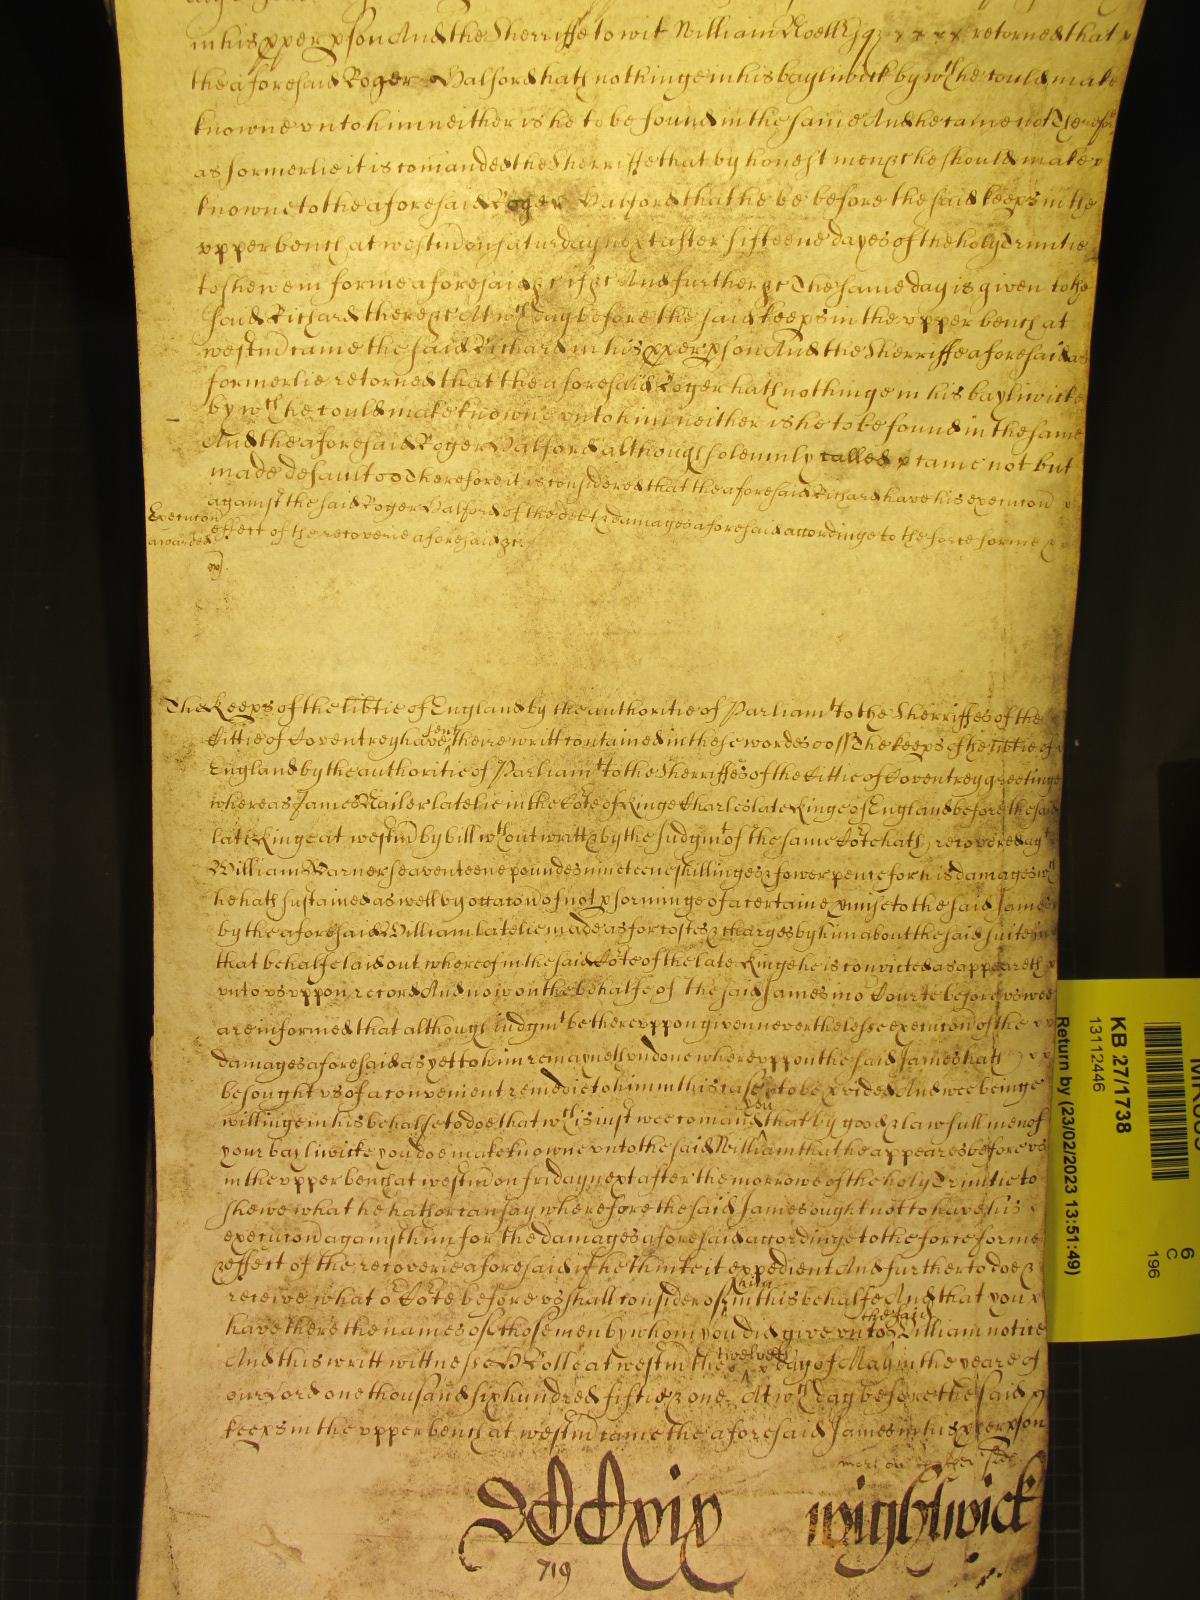 in his pper pson And the Sherriffe to wit William Noell Esqz x x x x returned that x
the aforesaid Roger Valford hath nothinge in his bayliwick by wch he could make
knowne vnto him neither is he to be found in the same And he came not Therefore
as formerlie it is comanded the Sherriffe that by honest men &c he should make x
knowne to the aforesaid Roger Valford that he be before the said keeps in the
vpper bench at westmr on saturday next after fifteene dayes of the holy Trinitie
to shewe in forme aforesaid &c if &c And further &c The same day is given to the
said Richard there &c At wch day before the said keeps in the vpper bench at
westmr came the said Richard in his pper pson And the Sherriffe aforesaid as
formerlie retorned that the aforesaid Roger hath nothinge in his bayliwicke
by wch he could make knowne vnto him neither is he to be found in the same
And the aforesaid Roger Valford although solemnly called x came not but
made default Therefore it is considered that the aforesaid Richard have his execucon
against the said Roger Valford of the debt & damages aforesaid accordinge to the force forme &
Execucon
awarded
effect of the recoverie aforesaid &c
The Keeps of the libtie of England by the authoritie of Parliamt to the Sherriffes of the
Cittie of Coventrey have sent there writt contained in these wordes ss The keeps of the libtie of
England by the authoritie of Parliamt to the Sherriffes of the Cittie of Coventrey greetinge
whereas James Nailer latelie in the Cote of Kinge Charles late Kinge of England before the said
late Kinge at westmr by bill wthout writt & by the Judgmt of the same Cote hath recovered agt
William Warner seaventeene poundes nineteene shillinges & fower pence for his damages wch
he hath sustained as well by occacon of not pforminge of a certaine pmise to the said James
by the aforesaid William latelie made as for costes & charges by him about the said suite in
that behalfe laid out whereof in the said Cote of the late Kinge he is convicted as appeareth x
vnto vs vppon record And now on the behalfe of the said James in o Courte before vs wee
are informed that although iudgmt be therevppon given neverthelesse execucon of the x x
damages aforesaid as yet to him remayneth vndone wherevppon the said James hath x x
besought vs of a convenient remedie to him in this case to be pvided And wee beinge
willinge in his behalfe to doe that wch is iust wee comand you that by good & lawfull men of
your bayliwicke you doe make knowne vnto the said William that he appeares before vs
in the vpper bench at westmr on friday next after the morrowe of the holy Trinitie to
shewe what he hath or can say wherefore the said James ought not to have his
execucon against him for the damages aforesaid accordinge to the force forme
& effect of the recoverie aforesaid if he thinke it expedient And further to doe &
receive what or Cote before vs shall consider of him in this behalfe And that you x
have there the names of those men by whom you did give vnto the said William notice
And this writt wittnesse H Rolle at westmr the twelveth x day of May in the yeare of
our Lord one thousand six hundred fiftie & one. At wch day before the said x
keeps in the vpper bench at westmr came the aforesaid James in his pper pson
more on other side
DCCxix wightwick
719
KB 27/1738
13112446
Return by (23/02/2023 13:51:49)
6
C
196